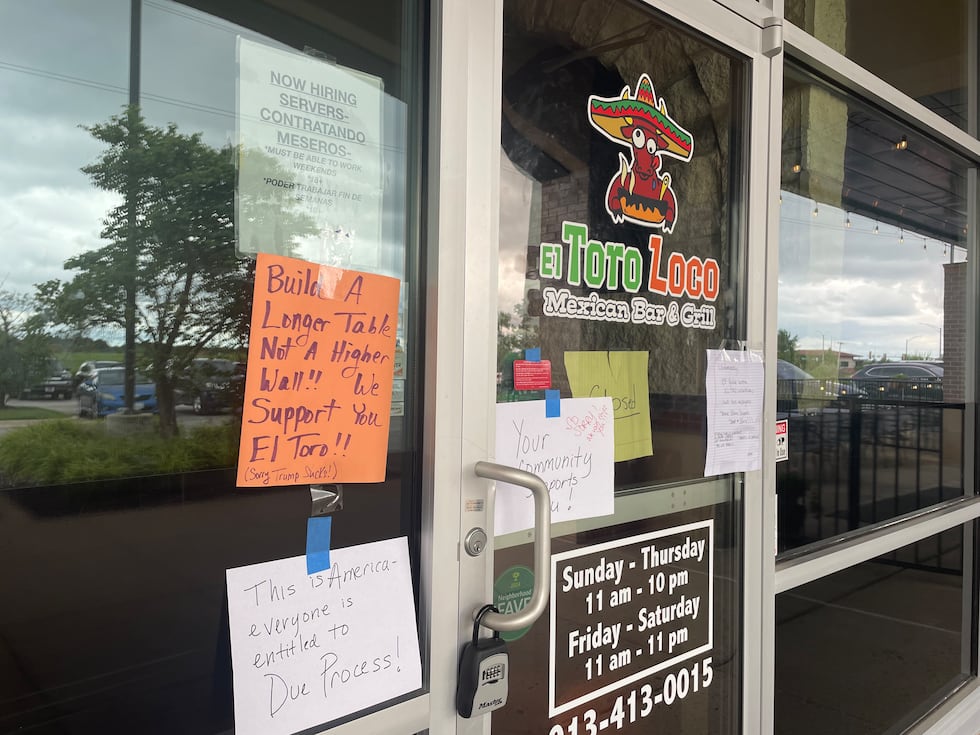 NOW HIRING
SERVERS-
CONTRATANDO
MESEROS-
*MUST BE ABLE TO WORK
WEEKENDS
*18+
*PODER TRABAJAR FIN DE
SEMANAS
Build A
Longer Table
Not A Higher
Wall!! We
Support You
El Toro!!
(Sorry Trump Sucks!)
This is America-
everyone is
entitled to
Due Process!
El Toro Loco
Mexican Bar & Grill
Closed
Your
Community
supports
you!
SO
SORRY!
Neighborhood
FAVE
Sunday - Thursday
11 am - 10 pm
Friday - Saturday
11 am - 11 pm
913-413-0015
Master